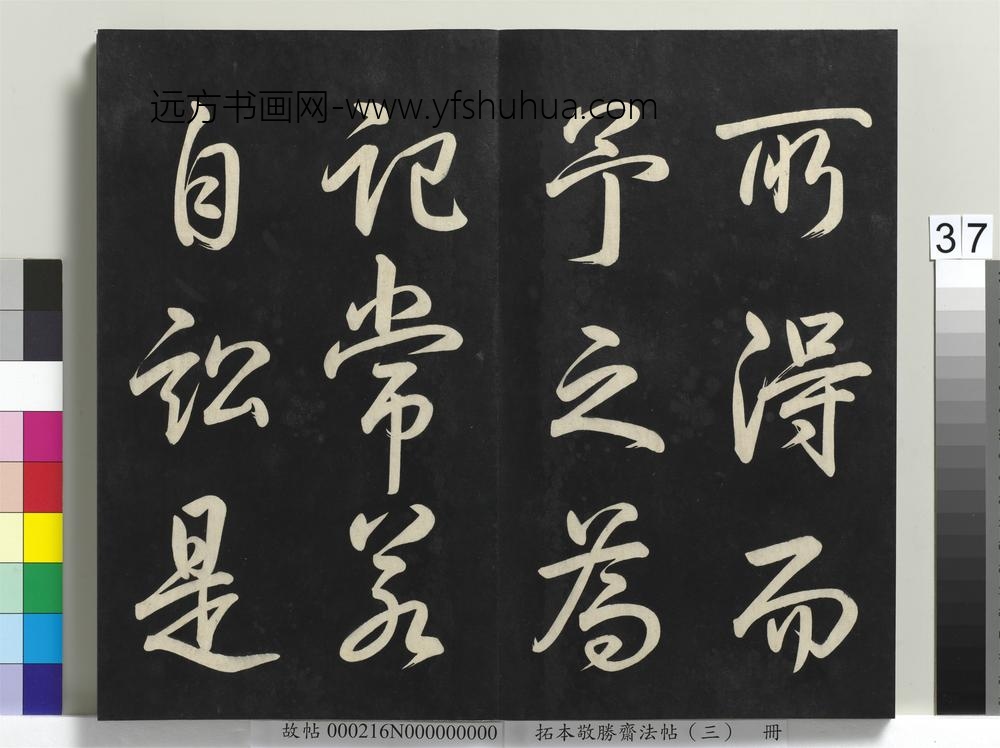 远方书画网-www.yfshuhua.com
所得而
予之為
記常
自訟是
37
故帖 000216N000000000 拓本敬勝齋法帖（三） 冊